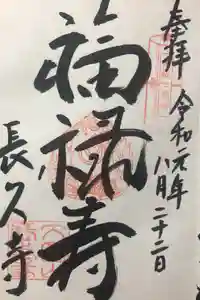 奉拝
令和元年
八月二十二日
福禄寿
長久寺